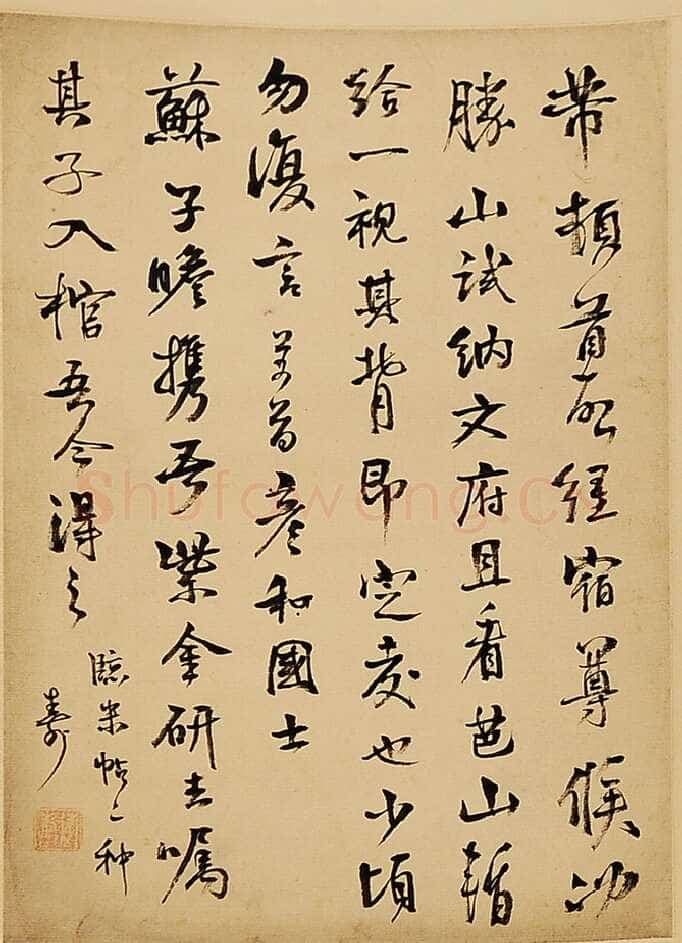 芾頓首啟經宿尊候沖
勝山試納文府且看芭山暫
給一視其背即定交也少頃
勿復言芾首彥和國士
蘇子瞻攜吾紫金研去囑
其子入棺吾今得之
臨米帖二種
壽
Shufawang.cn